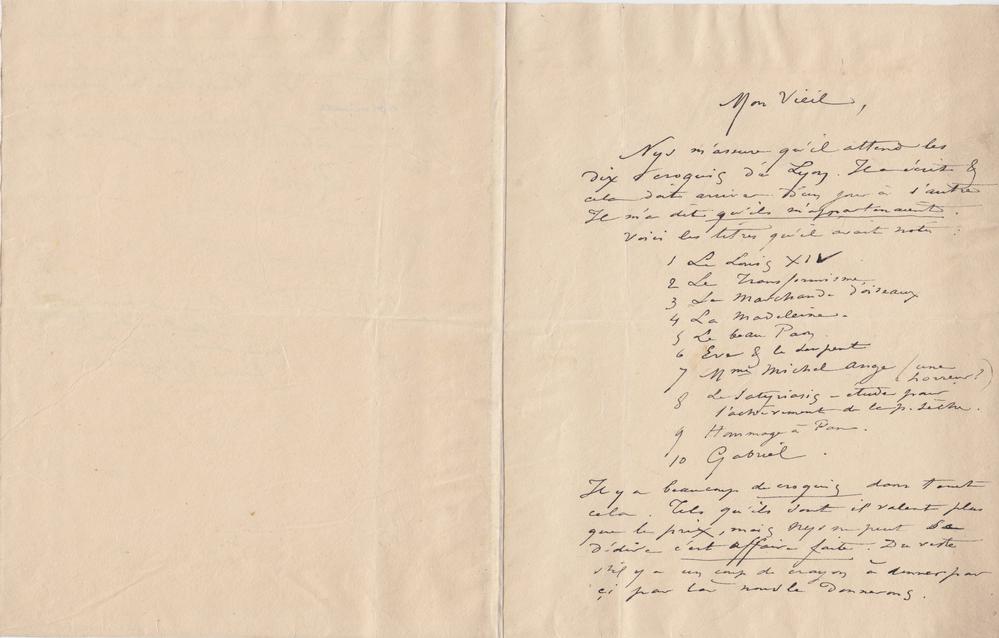 Mon Vieil,
Nys m'assure qu'il attend les
dix croquis de Lyon. Il a écrit &
cela doit arriver d'un jour à l'autre
Il m'a dit qu'ils m'appartenaient.
Voici les titres qu'il avait notés :
1 Le Louis XIV
2 Le Transformisme
3 La Marchande d'oiseaux
4 La Madeleine.
5 Le beau Paon
6 Eve & le serpent
7 Mme Michel Ange (une
horreur?)
8 Le Satyriasis – étude pour
l'achèvement de la p. sèche.
9 Hommage à Pan.
10 Gabriel.
Il y a beaucoup de croquis dans tout
cela. Tels qu'ils sont il valent plus
que le prix, mais Nys ne peut se
dédire c'est affaire faite. Du reste
s'il y a un coup de crayon à donner par
çi par là nous le donnerons.